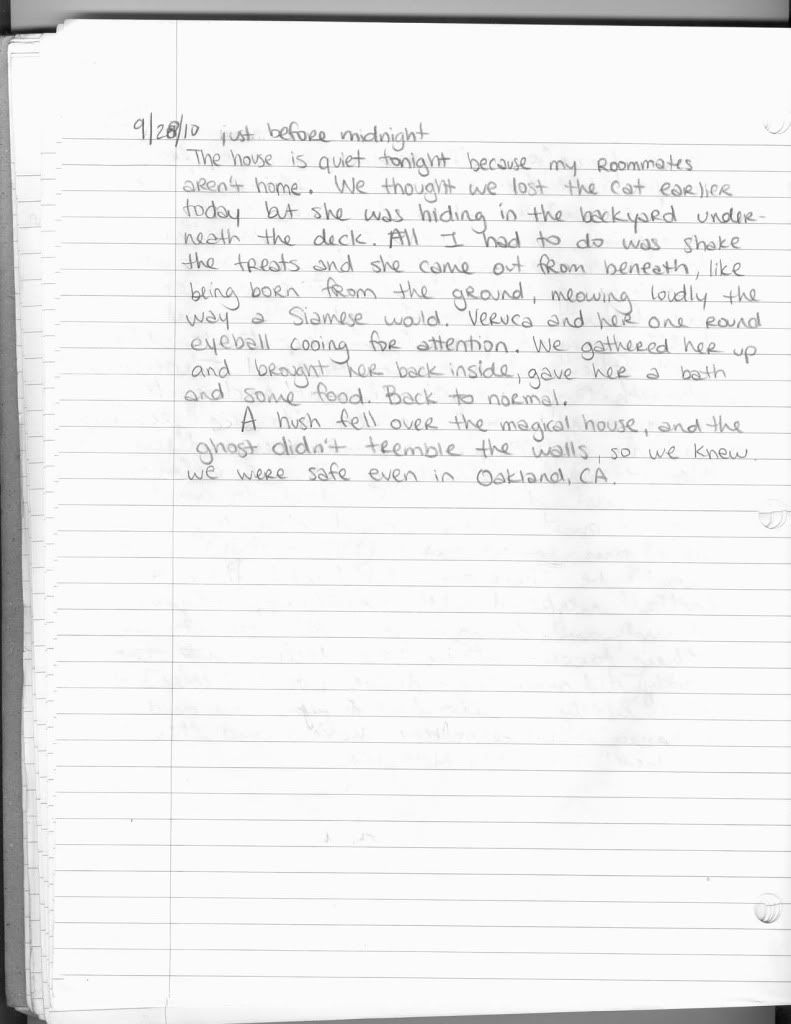 9/28/10 just before midnight
The house is quiet tonight because my Roommates
aren't home. We thought we lost the cat earlier
today but she was hiding in the backyard under-
neath the deck. All I had to do was shake
the treats and she came out from beneath, like
being born from the ground, meowing loudly the
way a Siamese would. Veruca and her one round
eyeball cooing for attention. We gathered her up
and brought her back inside, gave her a bath
and some food. Back to normal.
A hush fell over the magical house, and the
ghost didn't tremble the walls, so we knew
we were safe even in Oakland, CA.